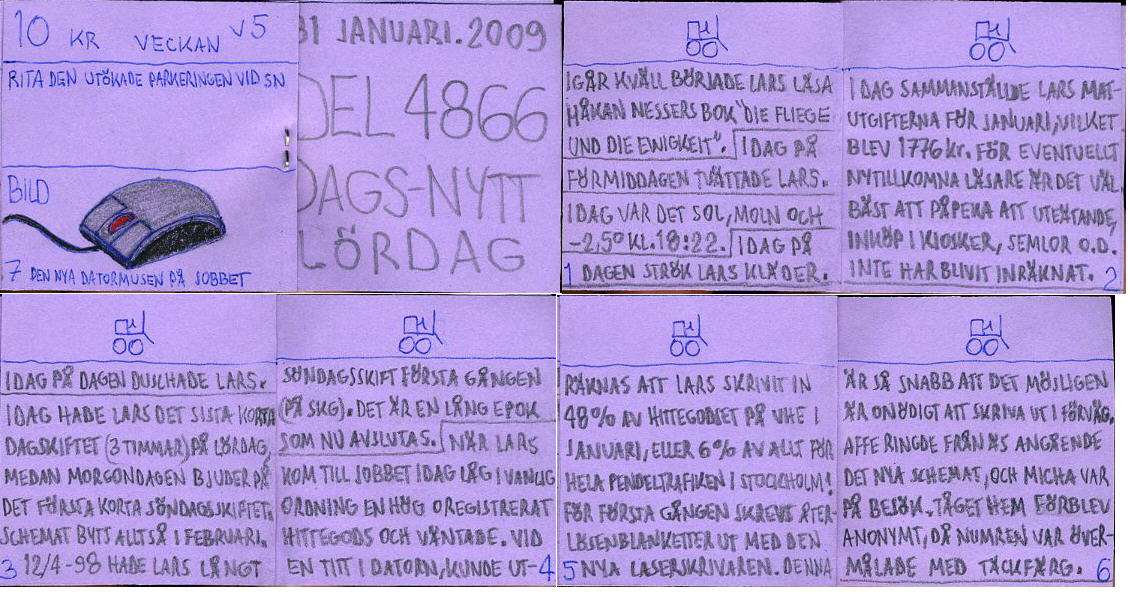 10 KR VECKAN V5
RITA DEN UTÖKADE PARKERINGEN VID SN
BILD
7 DEN NYA DATORMUSEN PÅ JOBBET
31 JANUARI.2009
DEL 4866
DAGS-NYTT
LÖRDAG
IGÅR KVÄLL BÖRJADE LARS LÄSA
HÅKAN NESSERS BOK "DIE FLIEGE
UND DIE EWIGKEIT". IDAG PÅ
FÖRMIDDAGEN TVÄTTADE LARS.
IDAG VAR DET SOL, MOLN OCH
-2,5° KL.18:22. IDAG PÅ
1 DAGEN STRÖK LARS KLÄDER.
I DAG SAMMANSTÄLLDE LARS MAT-
UTGIFTERNA FÖR JANUARI, VILKET
BLEV 1776 kr. FÖR EVENTUELLT
NYTILLKOMNA LÄSARE ÄR DET VÄL
BÄST ATT PÅPEKA ATT UTEÄTANDE,
INKÖP I KIOSKER, SEMLOR O.D.
INTE HAR BLIVIT INRÄKNAT. 2
IDAG PÅ DAGEN DUSCHADE LARS.
IDAG HADE LARS DET SISTA KORTA
DAGSKIFTET (3 TIMMAR) PÅ LÖRDAG,
MEDAN MORGONDAGEN BJUDER PÅ
DET FÖRSTA KORTA SÖNDAGSSKIFTET.
SCHEMAT BYTS ALLTSÅ I FEBRUARI.
3 12/4-98 HADE LARS LÅNGT
SÖNDAGSSKIFT FÖRSTA GÅNGEN
(PÅ SKG). DET ÄR EN LÅNG EPOK
SOM NU AVSLUTAS. NÄR LARS
KOM TILL JOBBET IDAG LÅG I VANLIG
ORDNING EN HÖG OREGISTRERAT
HITTEGODS OCH VÄNTADE. VID
EN TITT I DATORN, KUNDE UT-4
RÄKNAS ATT LARS SKRIVIT IN
48% AV HITTEGODSET PÅ VHE I
JANUARI, ELLER 6% AV ALLT FÖR
HELA PENDELTRAFIKEN I STOCKHOLM!
FÖR FÖRSTA GÅNGEN SKREVS ÅTER-
LÖSENBLANKETTER UT MED DEN
5 NYA LASERSKRIVAREN. DENNA
ÄR SÅ SNABB ATT DET MÖJLIGEN
ÄR ONÖDIGT ATT SKRIVA UT I FÖRVÄG.
AFFE RINGDE FRÅN ÄS ANGÅENDE
DET NYA SCHEMAT, OCH MICHA VAR
PÅ BESÖK. TÅGET HEM FÖRBLEV
ANONYMT, DÅ NUMREN VAR ÖVER-
MÅLADE MED TÄCKFÄRG. 6